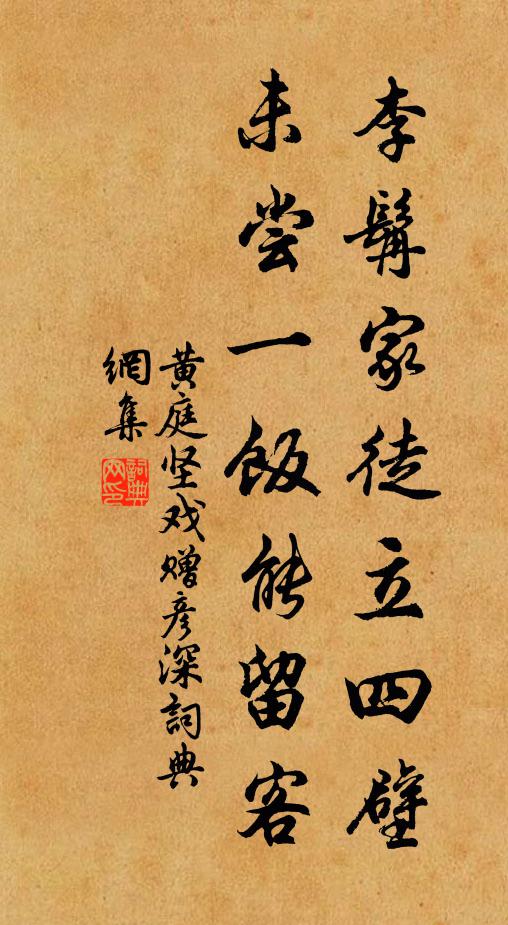 李髯家徒立四壁
未尝一飯能留客
黄庭坚戏赠彦深詞典
網集
詞典網印